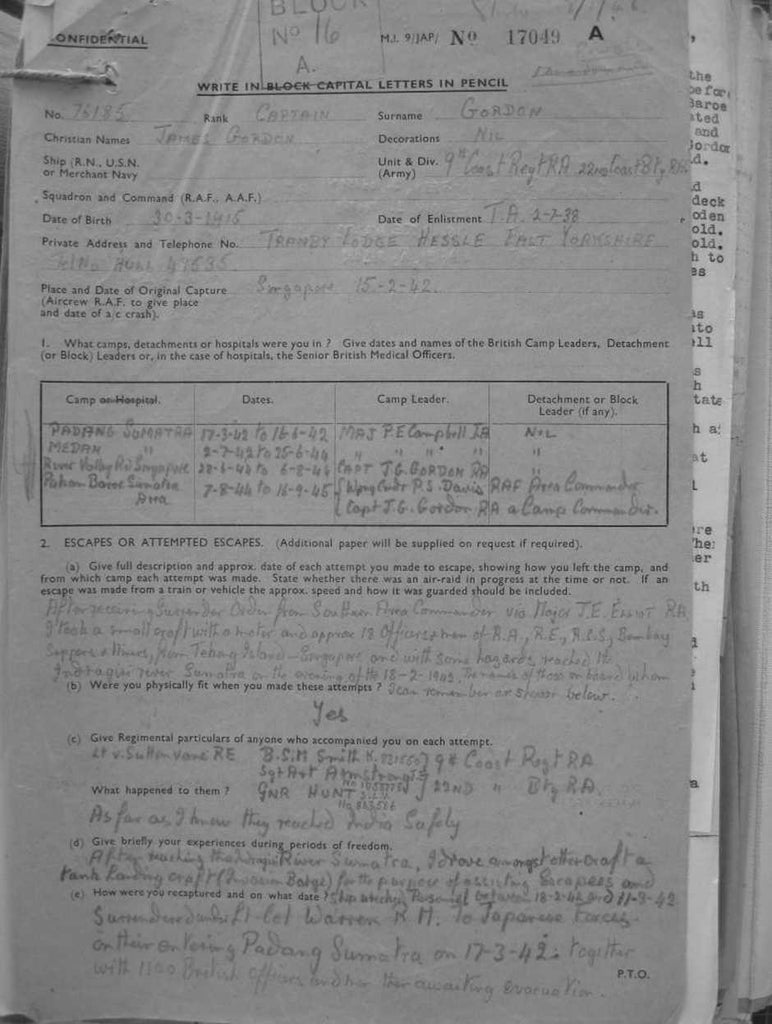 BLOCK
No 16
A.
CONFIDENTIAL
M.I. 9/JAP/ No 17049 A
WRITE IN BLOCK CAPITAL LETTERS IN PENCIL
No. 76185 Rank CAPTAIN Surname GORDON
Christian Names JAMES GORDON Decorations NIL
Ship (R.N., U.S.N. or Merchant Navy
Unit & Div. (Army) 9th Coast Regt RA 22nd Coast Bty RA
Squadron and Command (R.A.F., A.A.F.)
Date of Birth 30-3-1915 Date of Enlistment T.A. 2-7-38
Private Address and Telephone No. TRANBY LODGE HESSLE EAST YORKSHIRE
HULL 47535
Place and Date of Original Capture Singapore 15-2-42.
(Aircrew R.A.F. to give place
and date of a/c crash).
1. What camps, detachments or hospitals were you in ? Give dates and names of the British Camp Leaders, Detachment
(or Block) Leaders or, in the case of hospitals, the Senior British Medical Officers.
Camp or Hospital. Dates. Camp Leader. Detachment or Block Leader (if any).
PADANG SUMATRA 17-3-42 to 16-6-42 MAJ P.E Campbell IA NIL
MEDAN " 2-7-42 to 25-6-44 " " " "
River Valley Rd Singapore 28-6-44 to 6-8-44 CAPT J.G. GORDON RA "
Pakan Baroe Sumatra Area 7-8-44 to 16-9-45 Wing Cmdr P.S. Davis RAF Area Commander
Capt J.G. Gordon RA a Camp Commander.
2. ESCAPES OR ATTEMPTED ESCAPES. (Additional paper will be supplied on request if required).
(a) Give full description and approx. date of each attempt you made to escape, showing how you left the camp, and
from which camp each attempt was made. State whether there was an air-raid in progress at the time or not. If an
escape was made from a train or vehicle the approx. speed and how it was guarded should be included.
After receiving Surrender Order from Southern Area Commander via Major J.E. Elliot RA
I took a small craft with a motor and approx 18 Officers & men of R.A., R.E., R.C.S., Bombay
Sappers & Miners, from Tekong Island - Singapore and with some hazards reached the
Indragiri river Sumatra on the evening of the 18-2-1942, The names of those on board whom
(b) Were you physically fit when you made these attempts ? I can remember are shown below.
Yes
(c) Give Regimental particulars of anyone who accompanied you on each attempt.
Lt V. Sutton Vane RE B.S.M Smith K. 9th Coast Regt RA
Sgt Art Armstrong
What happened to them ? GNR HUNT 22ND " Bty RA.
No 863566
As far as I know they reached India Safely
(d) Give briefly your experiences during periods of freedom.
After reaching the Indragiri River Sumatra, I drove amongst other craft a
tank landing craft (Invasion Barge) for the purpose of assisting Escapees and
(e) How were you recaptured and on what date ? Shipwrecked Personnel between 18-2-42 and 11-3-42
Surrendered under Lt-Col Warren R.M. to Japanese forces
on their entering Padang Sumatra on 17-3-42. together
with 1100 British officers and awaiting evacuation.
P.T.O.